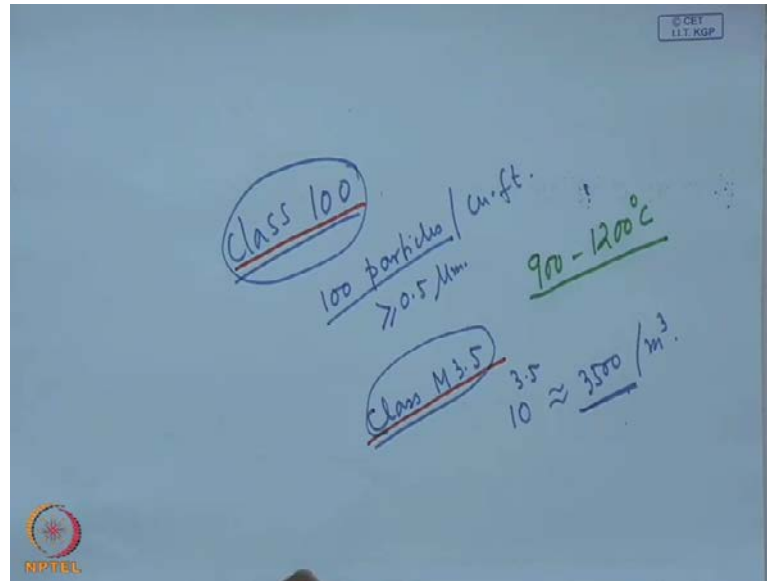 © CET
I.I.T. KGP
Class 100
100 particles / cu.ft.
≥ 0.5 μm.
900 - 1200°C
Class M 3.5
10^3.5 ≈ 3500 / m³.
NPTEL